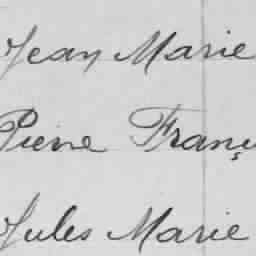 Jean Marie
Pierre Franç
Jules Marie